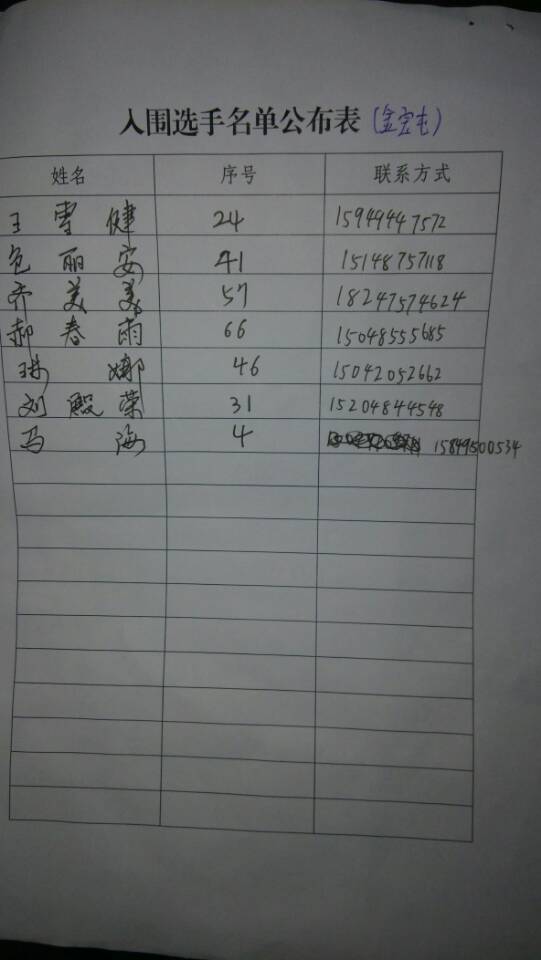 入围选手名单公布表（金宝屯）
姓名 序号 联系方式
王雪健 24 15949447572
包丽安 41 15148757118
齐美美 57 18247574624
郝春雨 66 15048555685
琳娜 46 15042052662
刘殿荣 31 15204844548
马海 4 15849500534